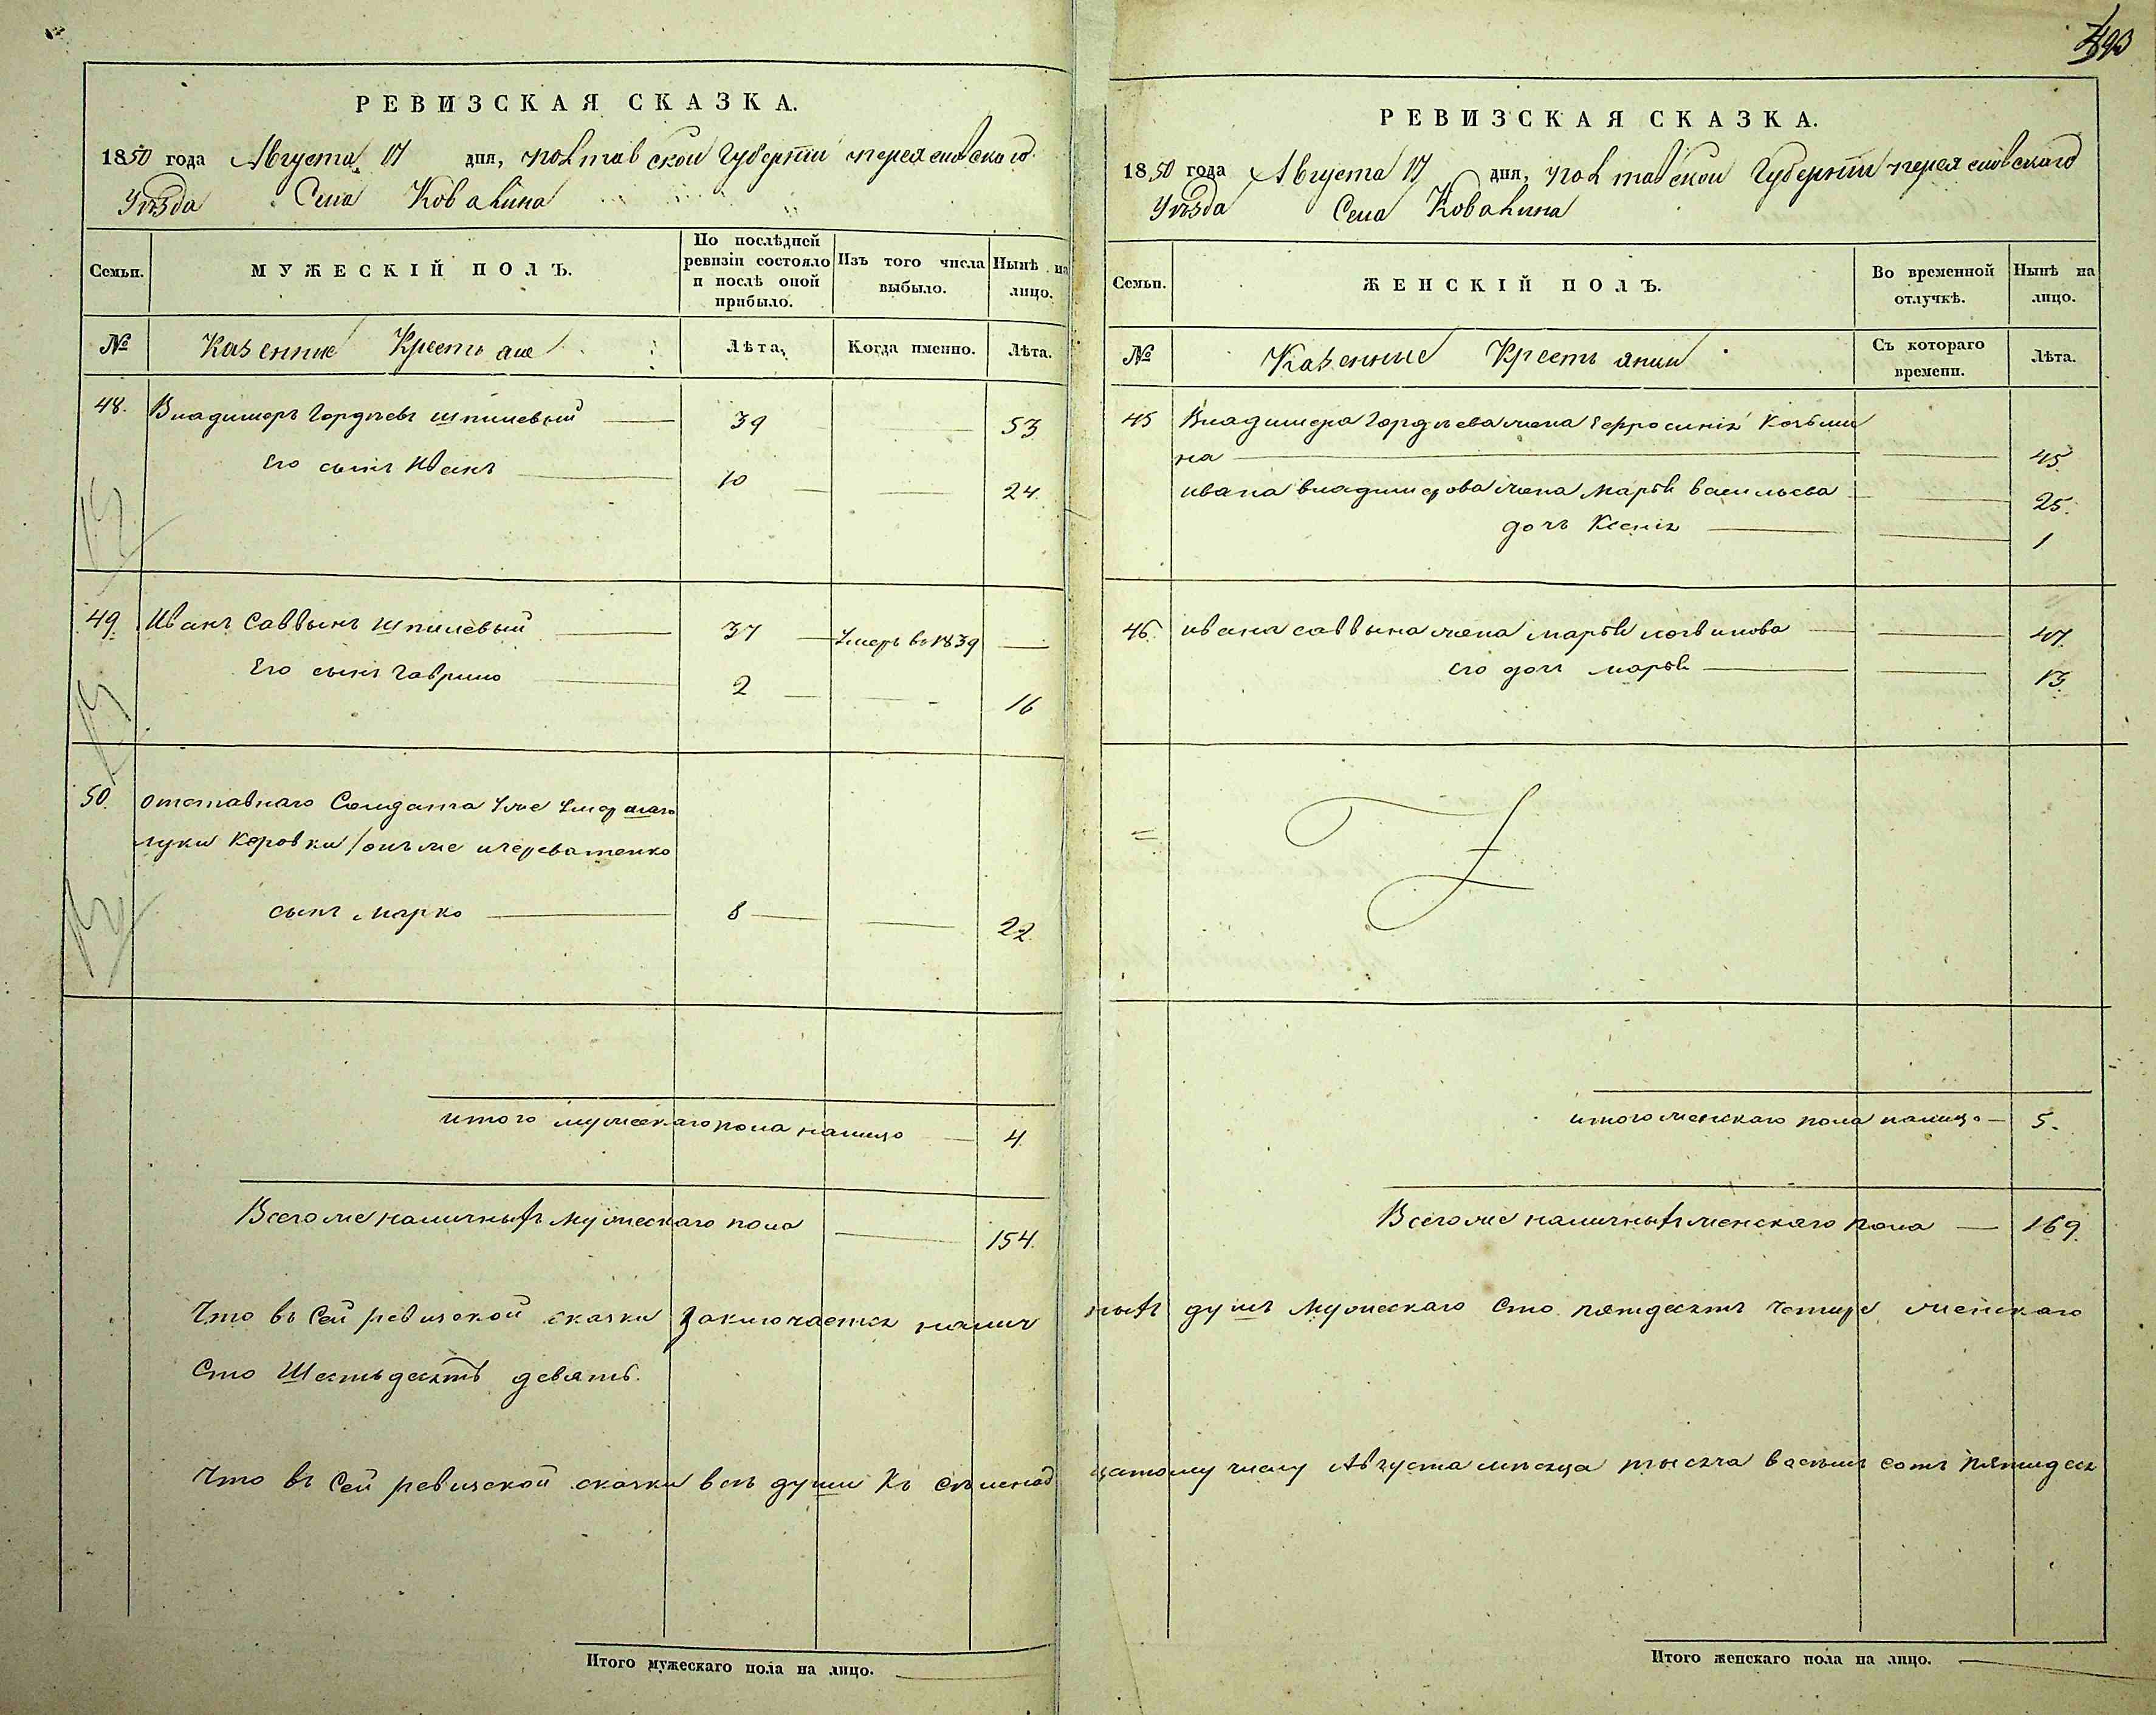 РЕВИЗСКАЯ СКАЗКА.
1850 года Августа 17 дня, Полтавской Губернии Переяславского
Уѣзда Села Ковалина
Семьи.
МУЖЕСКІЙ ПОЛЪ.
По послѣдней ревизіи состояло и послѣ оной прибыло.
Изъ того числа выбыло.
Нынѣ на лицо.
№
Казенные Крестьяне
Лѣта.
Когда именно.
Лѣта.
48. Владимеръ Гордѣевъ Шпилевый 39 53
Его сынъ Иванъ 10 24.
49. Иванъ Саввынъ Шпилевый 37 Умеръ въ 1839
Его сынъ Гаврило 2 16
50. отставнаго Солдата уже умершаго
луки Коровки / онъ же Череватенко
сынъ Марко 8 22
итого мужескаго пола налицо 4
Всего же наличныхъ мужескаго пола 154.
Что въ сей ревизской сказки заключается налич
Сто Шестьдесятъ девять.
Что въ сей ревизской сказки всѣ души къ семьнад
Итого мужескаго пола на лицо.
РЕВИЗСКАЯ СКАЗКА.
1850 года Августа 17 дня, Полтавской Губерніи Переяславского
Уѣзда Села Ковалина
Семьи.
ЖЕНСКІЙ ПОЛЪ.
Во временной отлучкѣ.
Нынѣ на лицо.
№
Казенные Крестьянки
Съ котораго времени.
Лѣта.
45 Владимера Гордѣева жена Ефросинія Козьми
на 45
Ивана Владимерова жена Марья Васильева 25.
дочь Ксенія 1
46. Ивана Саввына жена Марья Логвинова 47.
его дочь Марья 13.
итого женскаго пола налицо 5.
Всего же наличныхъ женскаго пола 169.
ныхъ душъ мужескаго Сто пятдесятъ четыре, женскаго
цатому числу Августа мѣсяца тысяча восемь сотъ пятидеся
Итого женскаго пола на лицо.